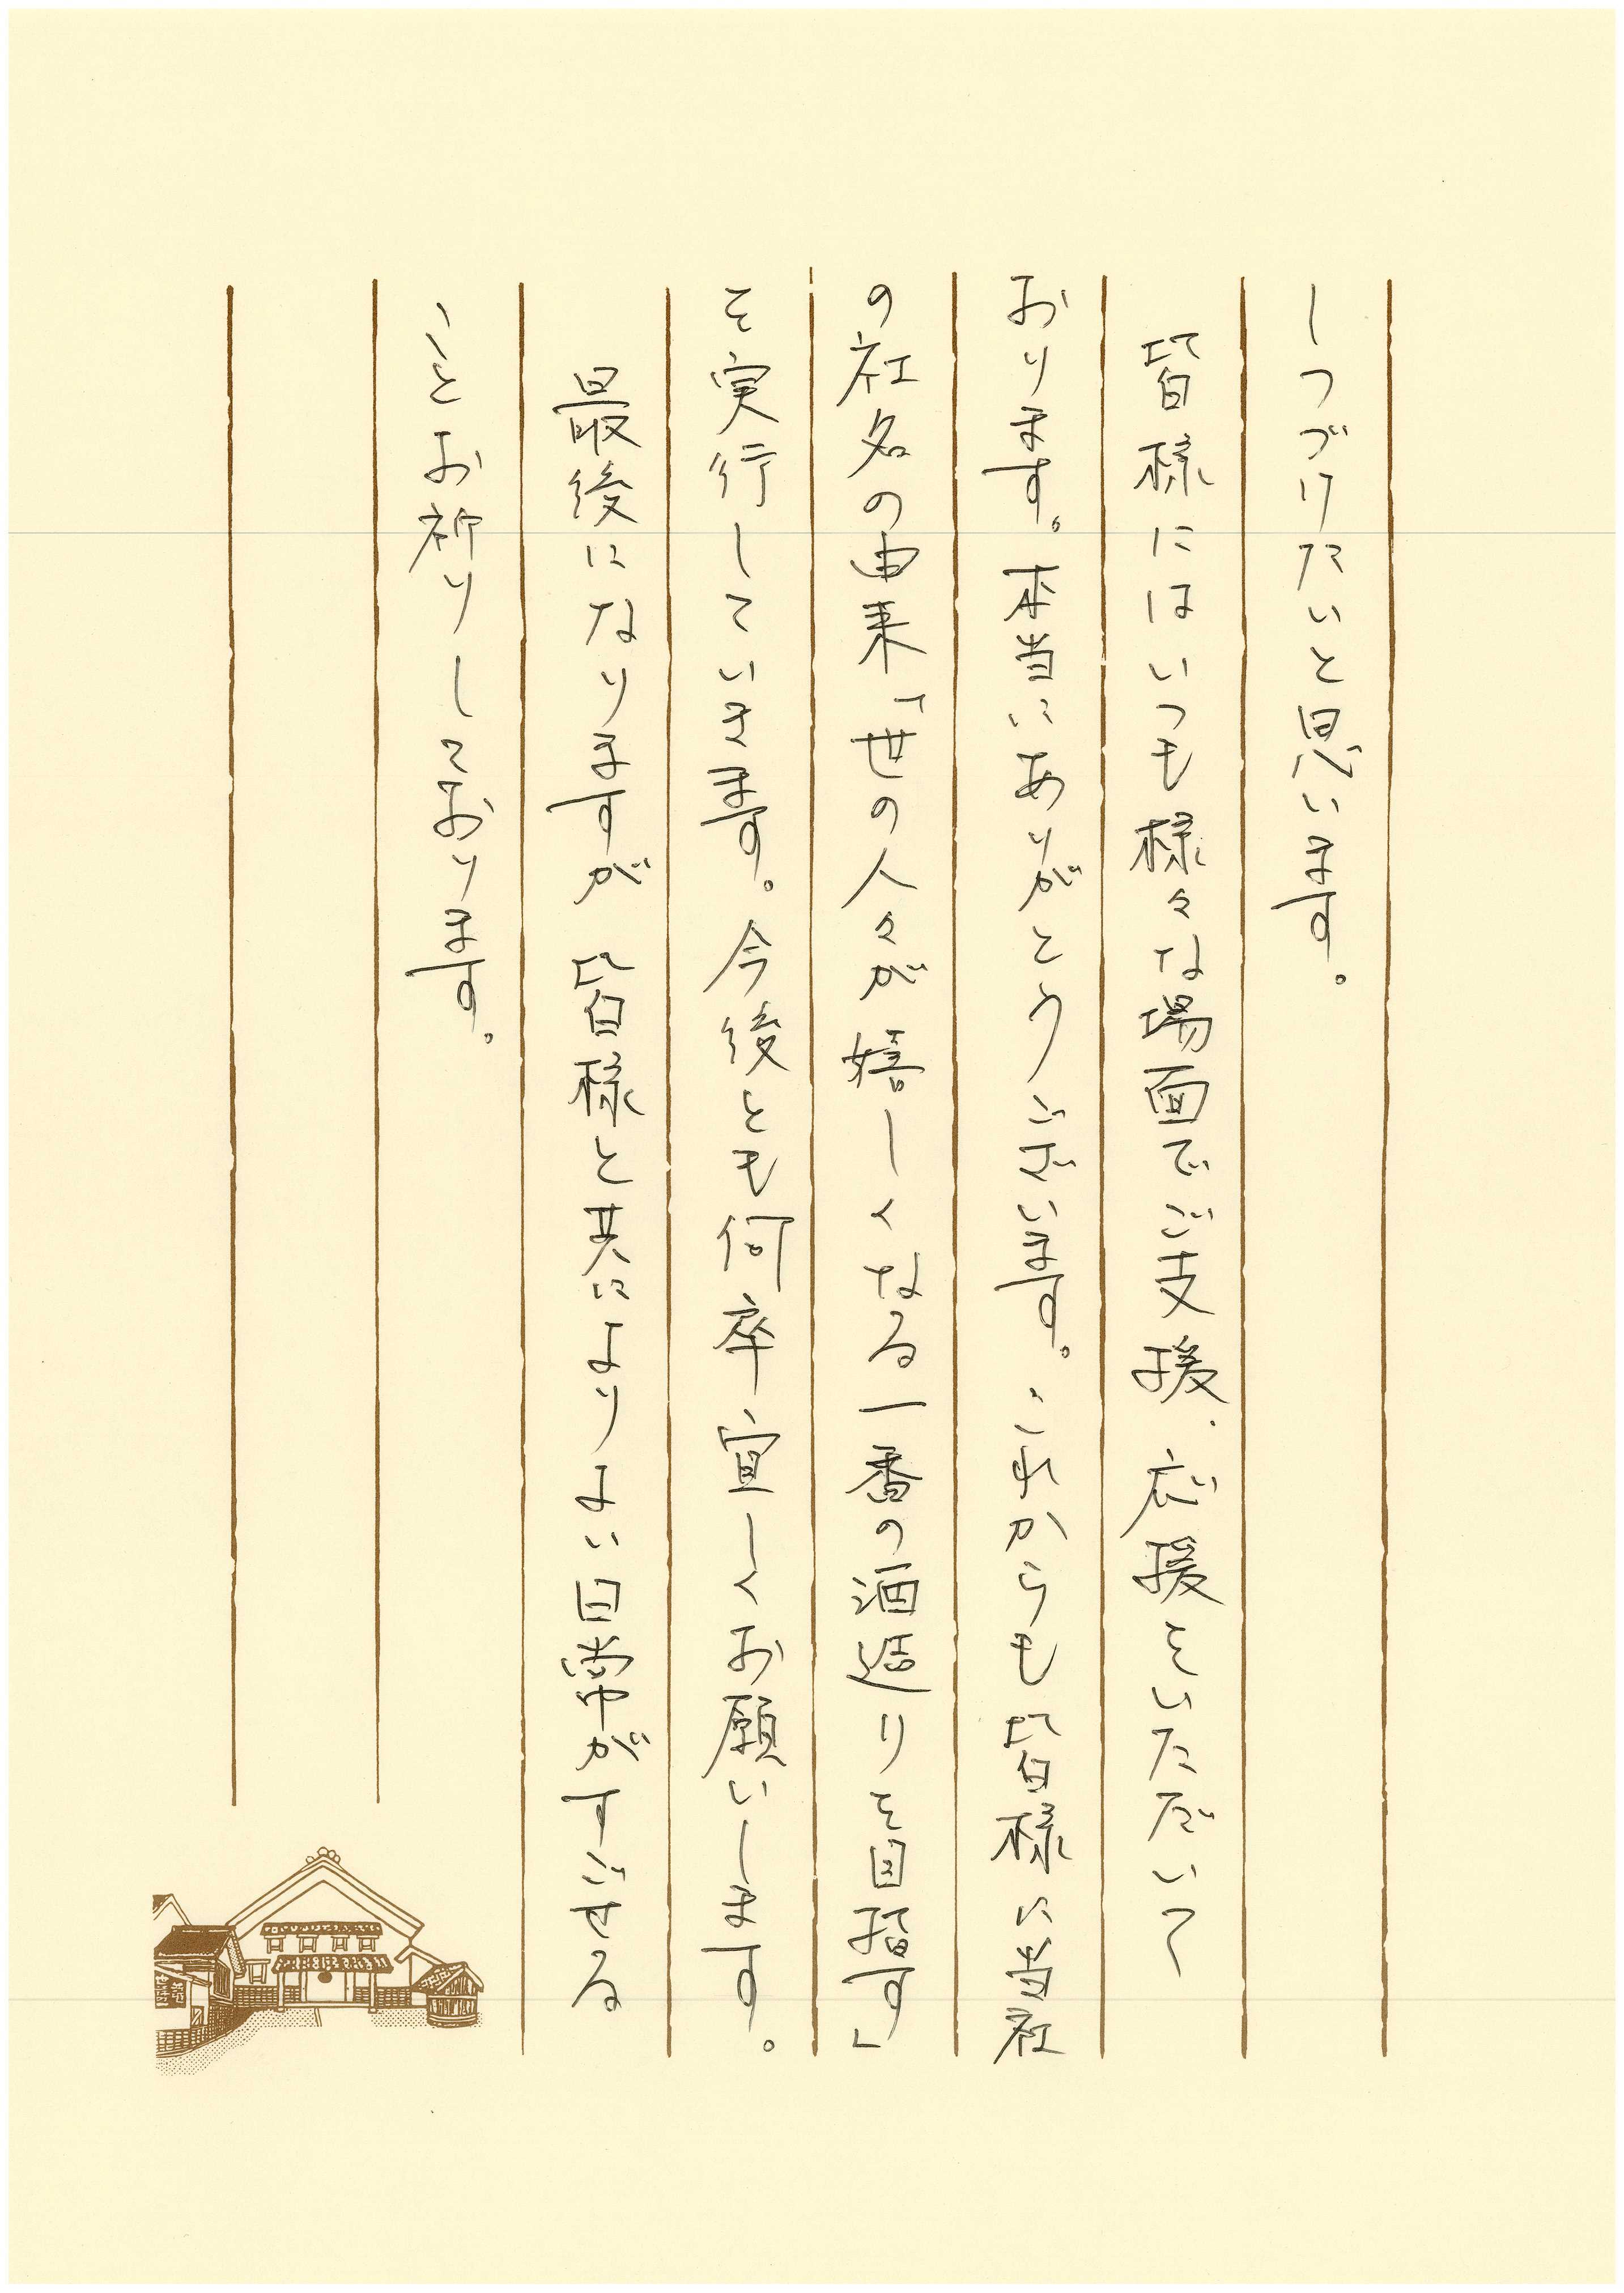 しつづけたいと思います。
皆様にはいつも様々な場面でご支援、応援をいただいて
おります。本当にありがとうございます。これからも皆様に当社
の社名の由来「世の人々が嬉しくなる一番の酒造りを目指す」
を実行していきます。今後とも何卒宜しくお願いします。
最後になりますが皆様と共によりよい日常がすごせる
ことお祈りしております。